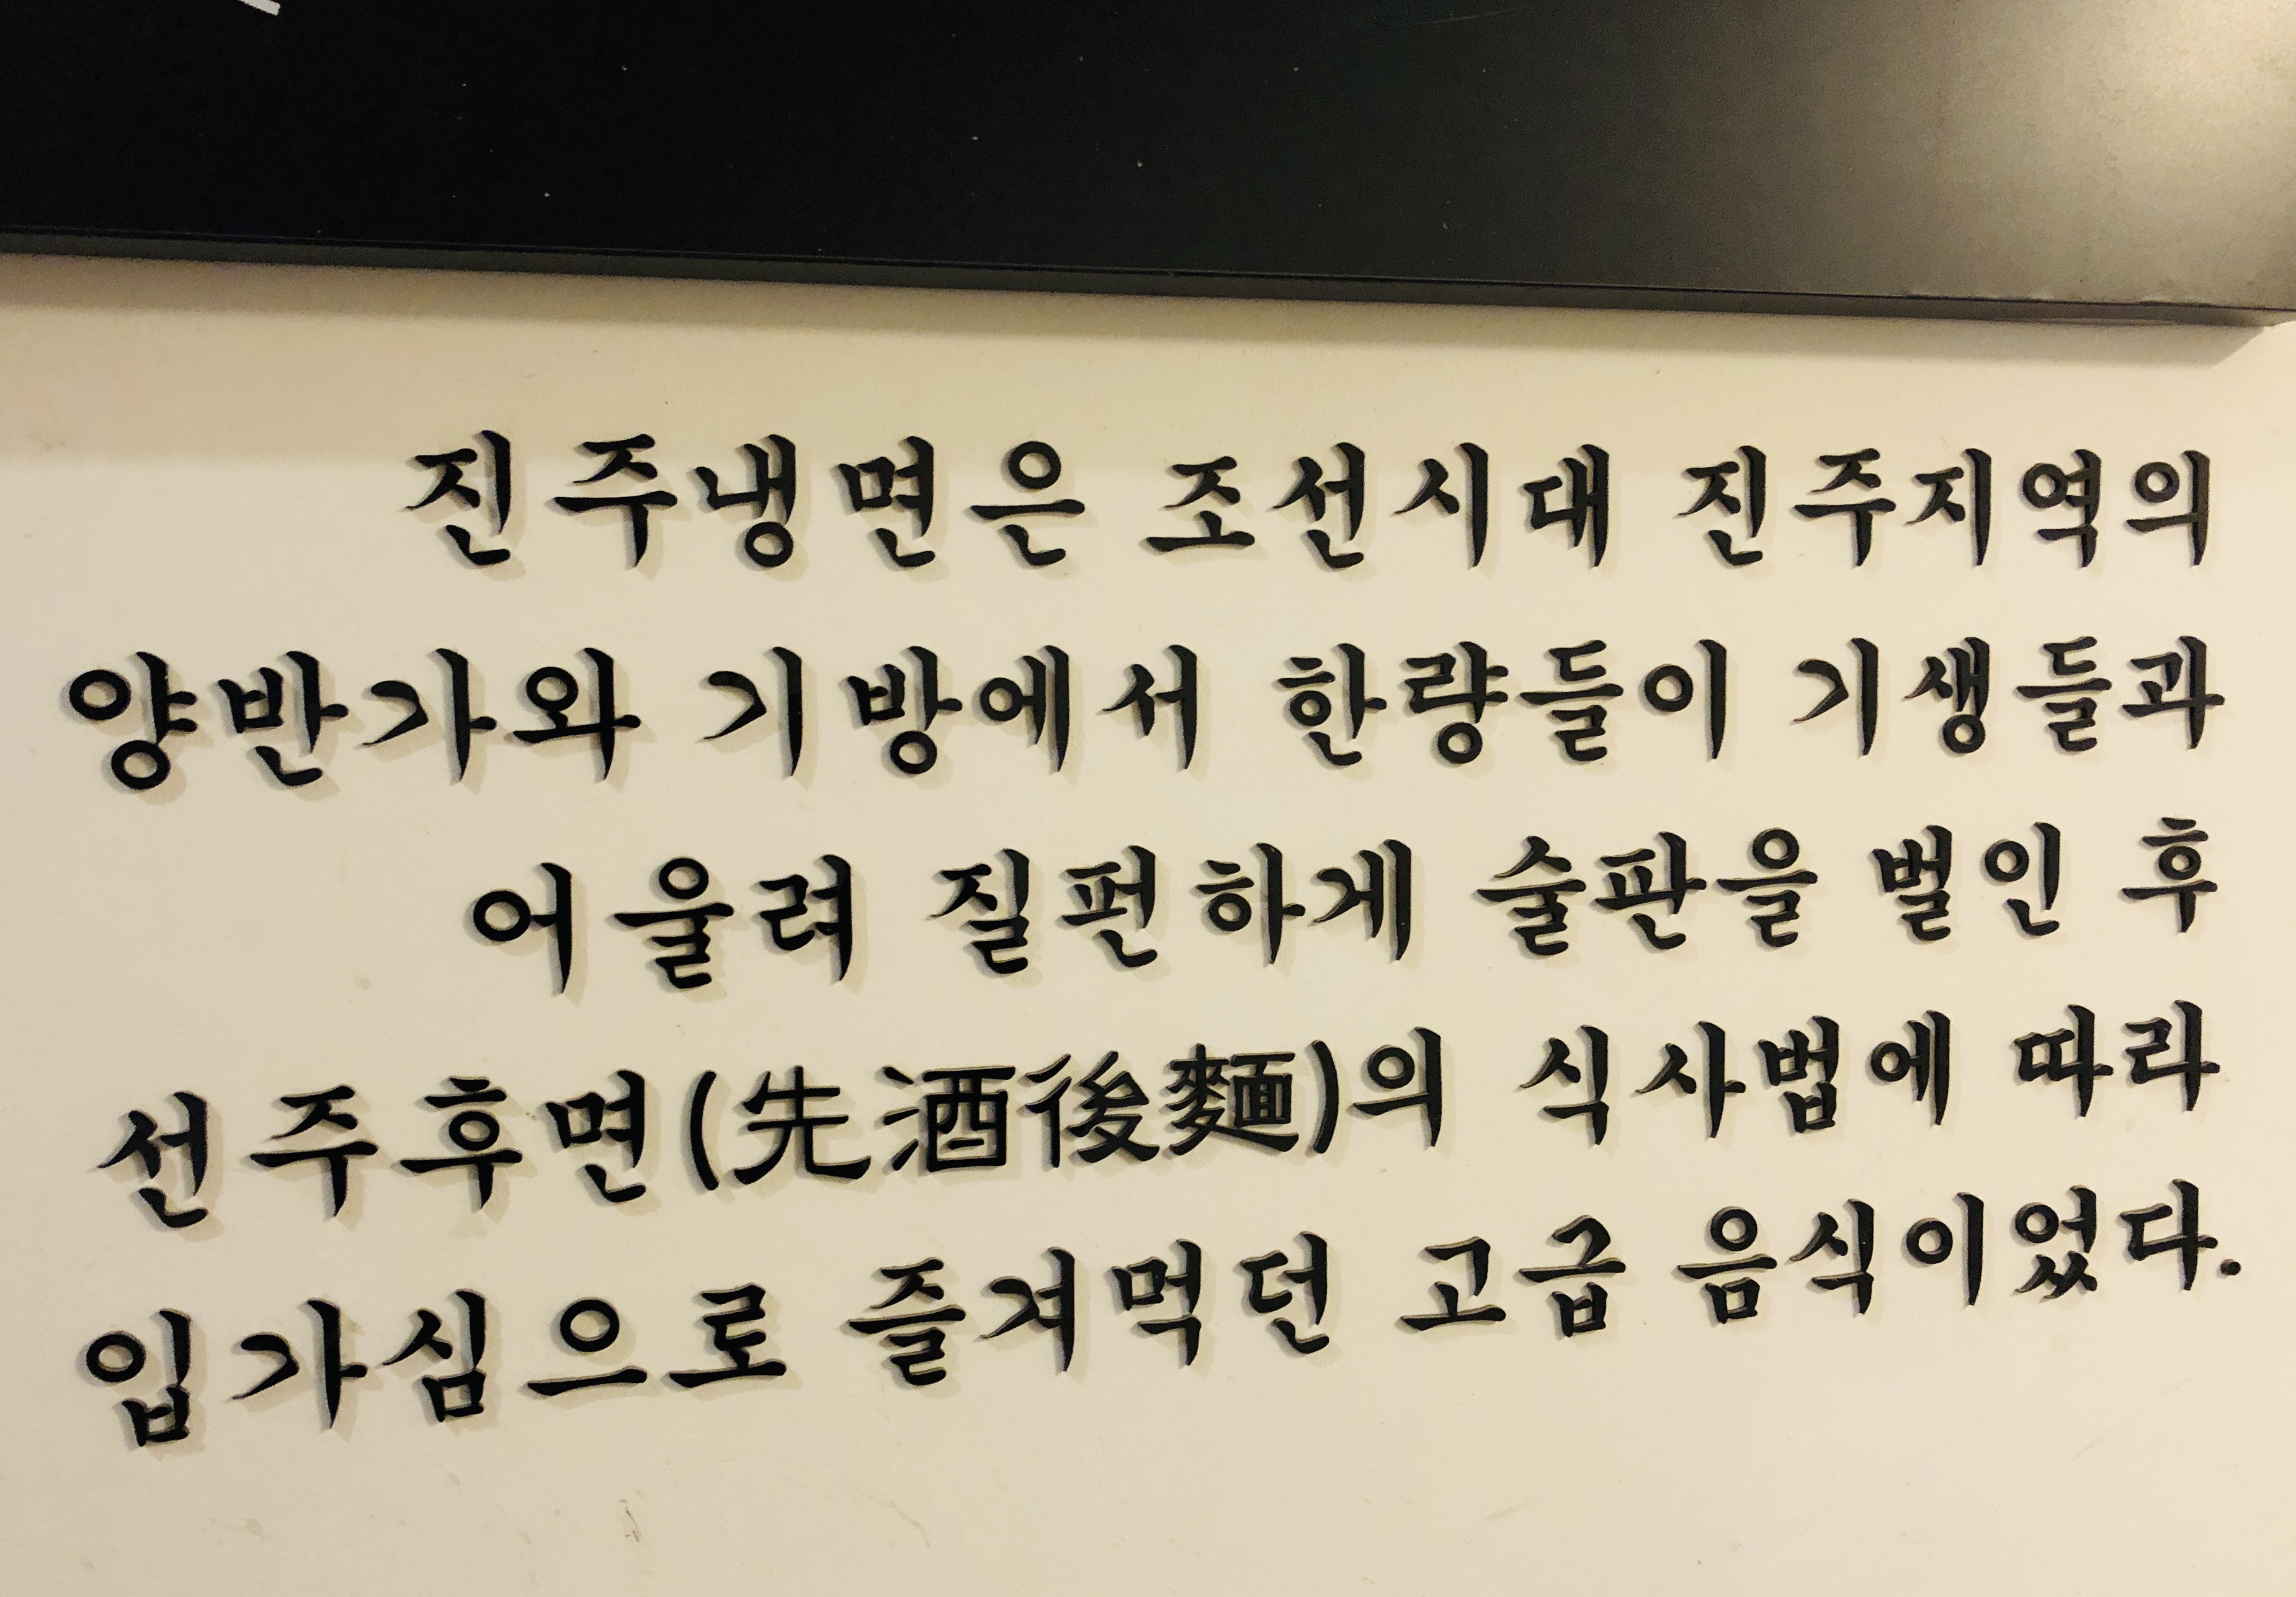 진주냉면은 조선시대 진주지역의
양반가와 기방에서 한량들이 기생들과
어울려 질펀하게 술판을 벌인 후
선주후면(先酒後麵)의 식사법에 따라
입가심으로 즐겨먹던 고급 음식이었다.